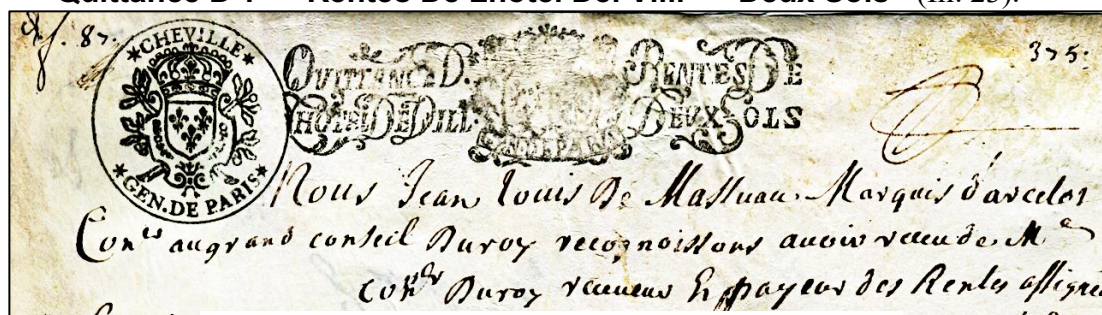 Quittance D* Rentes De Lhotel De. Vill. Deux Sols (Ill. 23).
87.
375:
*CHEVILLE*
*GEN. DE PARIS*
QUITTANCE D. RENTES DE
LHOTEL DE VILL. DEUX SOLS
GEN. PARIS
Nous Jean Louis De Massuau Marquis d'arcelot
Con.er au grand conseil Du roy recognoissons avoir receu de M.e
con.er Du roy receveur Et payeur des Rentes assignée